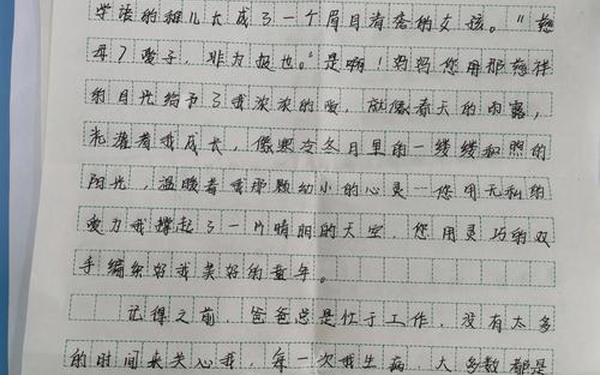 学语的稚儿长成了一个眉目有奢的女孩。“慈
母了爱子，非为报也。”是啊！妈妈您用那慈祥
的目光给予了我浓浓的爱，就像春天的雨露，
灌着我成长，像熙冷冬月里的一缕缕和煦的
阳光，温暖着我那颗幼小的心灵…您用无私的
爱力我撑起了一片晴朗的天空，您用灵巧的双
手编织好我美好的童年。
记得之前，爸爸总是忙于工作，没有太多
的时间来关心我，每一次我生病，大多数都是